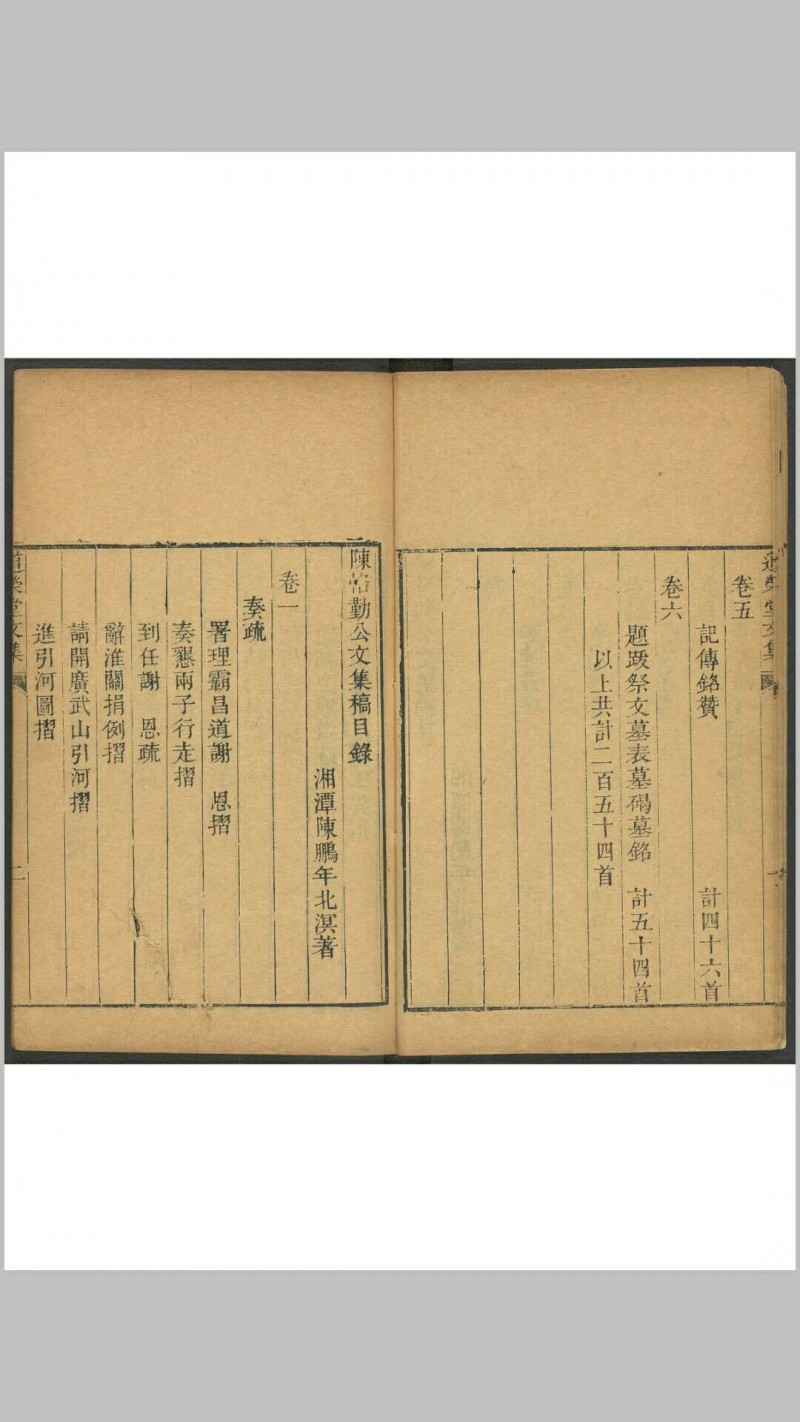 卷五
記傳銘贊 計四十六首
卷六
題跋祭文墓表墓碣墓銘 計五十四首
以上共計二百五十四首
陳恪勤公文集稿目錄
湘潭陳鵬年北溟著
卷一
奏疏
署理霸昌道謝 恩摺
奏懇兩子行走摺
到任謝 恩疏
辭淮關捐例摺
請開廣武山引河摺
進引河圖摺
道榮堂文集 二